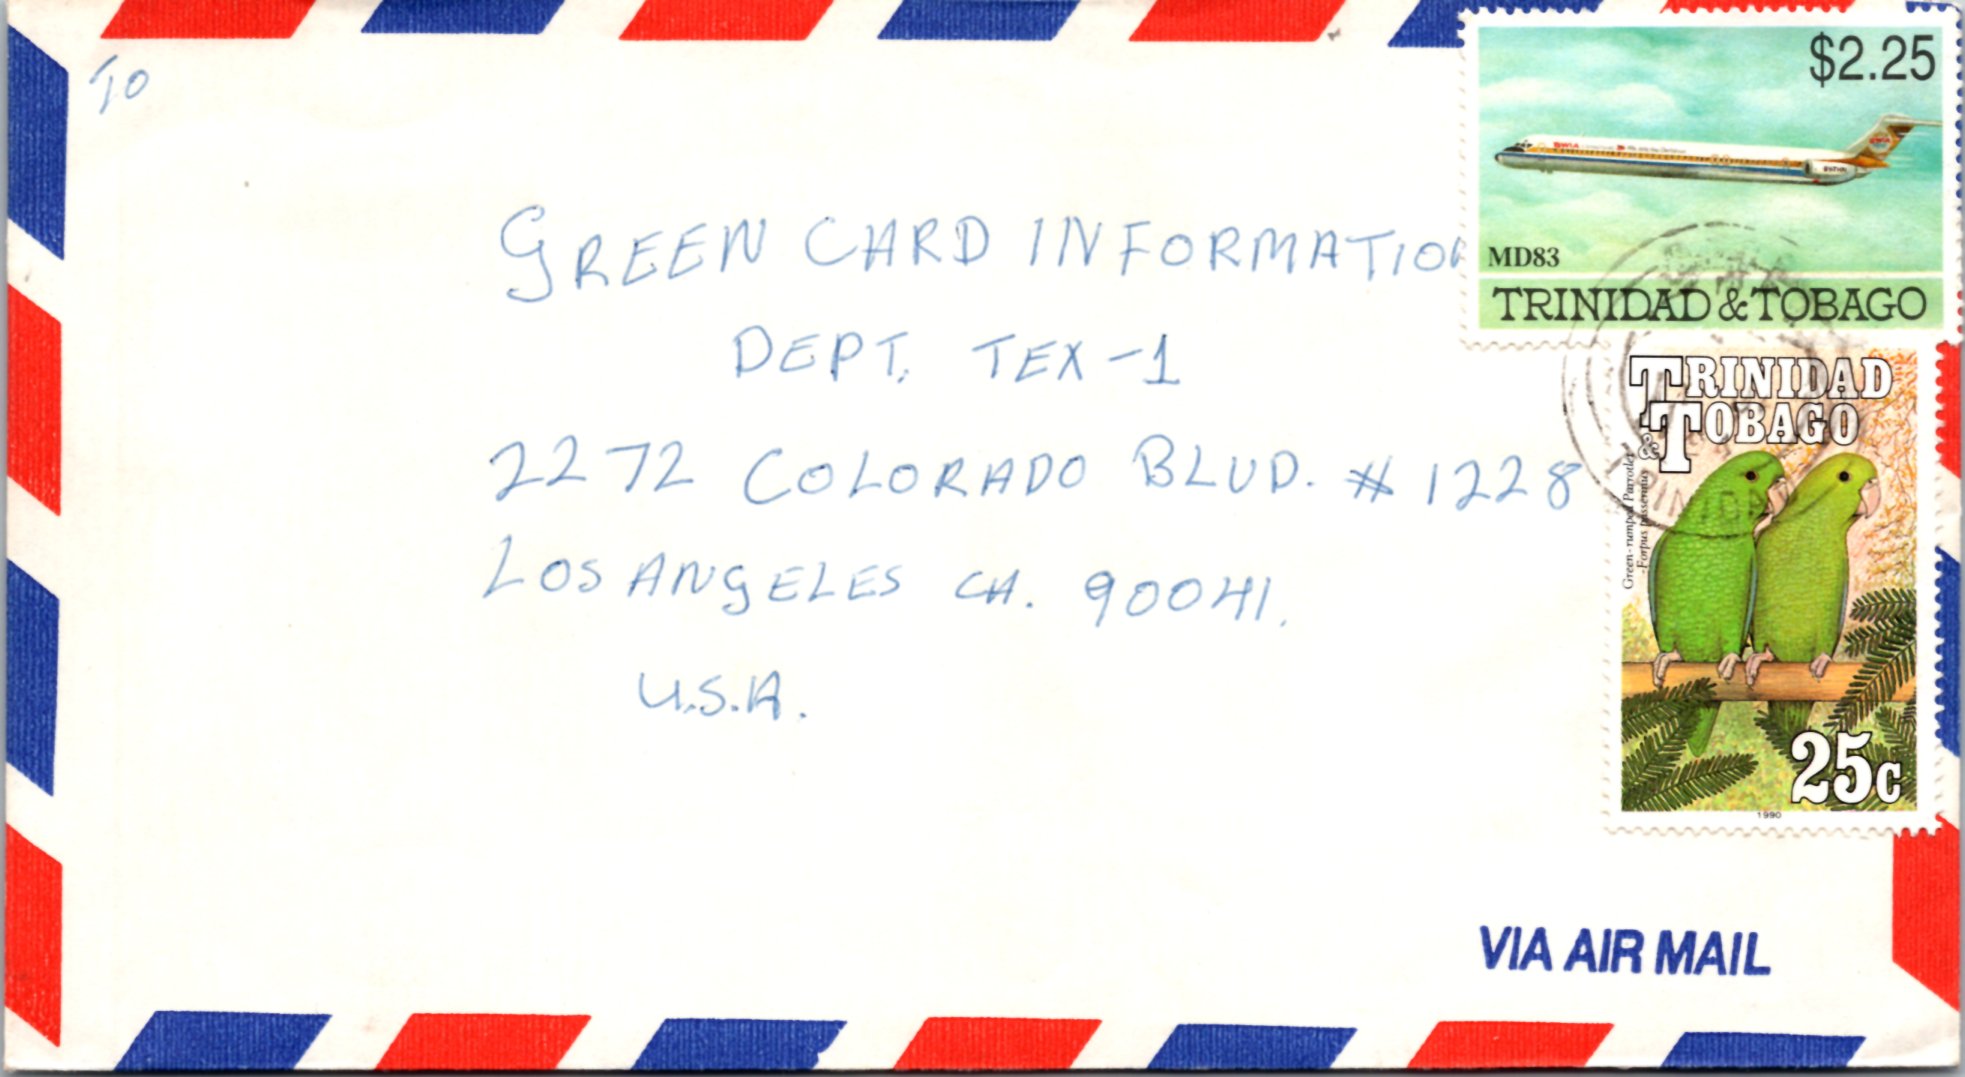 TO
GREEN CARD INFORMATION
DEPT. TEX-1
2272 COLORADO BLVD. # 1228
LOS ANGELES CA. 90041.
U.S.A.
$2.25
BWIA
MD83
TRINIDAD & TOBAGO
TRINIDAD
& TOBAGO
Green-rumped Parrotlet
-Forpus passerinus
TRINIDAD
25c
1990
VIA AIR MAIL